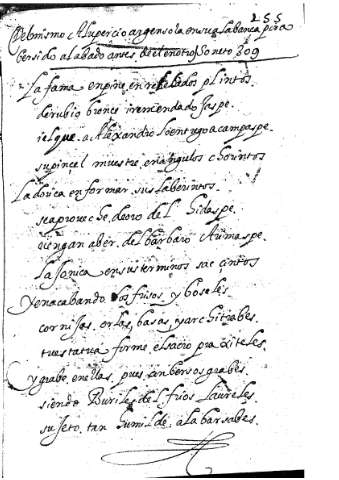 255
Del mismo A Lupercio argensola en su alabança por a
bersido alabado antes. de el en otro Soneto 209
La fama en pine, en relebados plintos
de rubio bronce i remendado jaspe.
i el que. a Alexandro lo entrego a campaspe.
su pincel muestre en angulos chorintos
La dorica en formar. sus laberintos.
se aproveche. de oro del Hidaspe.
vengan a ber. del barbaro Arimaspe.
la Jonica en sus terminos sucintos
Y en acabando. los frisos, y boseles
cornisas. orlas, basas, y architrabes.
tu estatua forme. el sacio praxiteles
Y grabe. en ellas. pues. in bersos grabes.
siendo Buriles del. frios Laureles.
sujeto. tan humilde. alabar sabes.